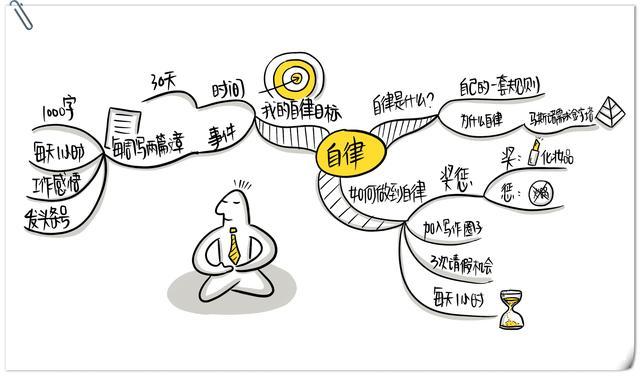 自律
我的自律目标
时间
30天
事件
每周写两篇文章
1000字
每天1小时
工作感悟
发头条号
自律是什么?
自己的一套规则
为什么自律
马斯洛需求金字塔
如何做到自律
奖惩
奖:
化妆品
惩:
加入写作圈子
3次请假机会
每天1小时